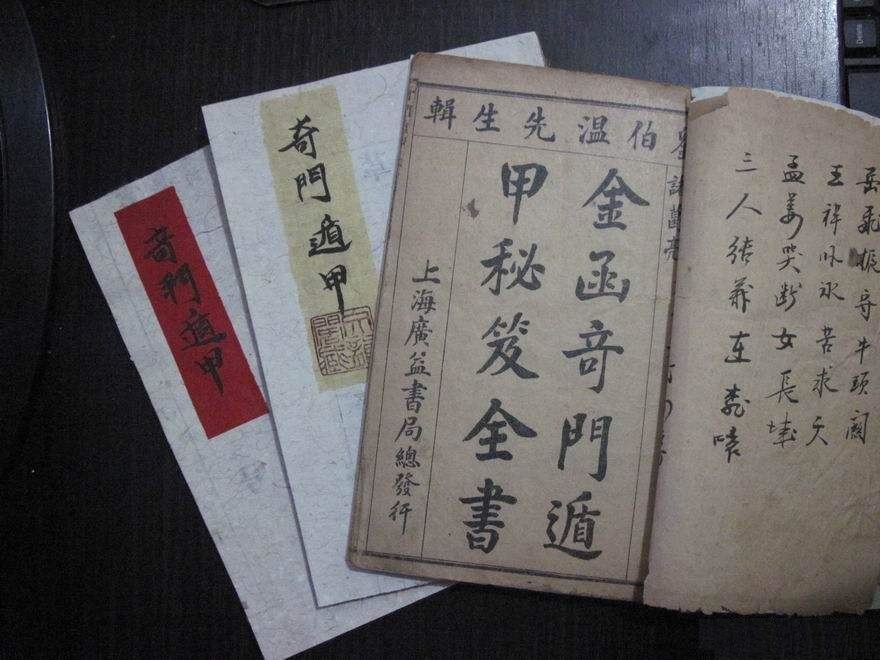 奇門遁甲
奇門遁甲
伯温先生輯
諸葛亮
金函奇門遁
甲秘笈全書
上海廣益書局總發行
岳飛振守牛頭
王祥卧冰苦求天
孟姜哭断女長城
三人结義在桃園